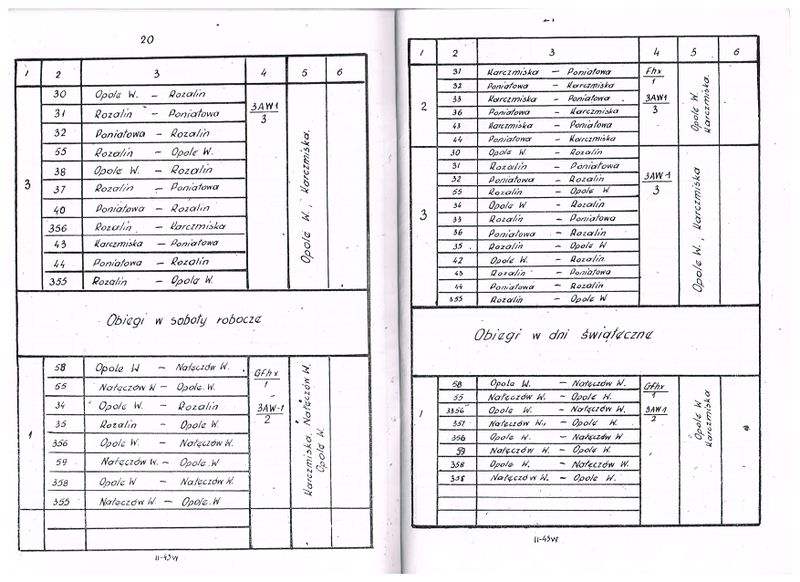 20
1 2 3 4 5 6
3
30 Opole W. – Rozalin
31 Rozalin – Poniatowa
32 Poniatowa – Rozalin
55 Rozalin – Opole W.
38 Opole W. – Rozalin
37 Rozalin – Poniatowa
40 Poniatowa – Rozalin
356 Rozalin – Karczmiska
43 Karczmiska – Poniatowa
44 Poniatowa – Rozalin
355 Rozalin – Opole W.
3AW1
3
Opole W., Karczmiska.
Obiegi w soboty robocze
1
58 Opole W – Nałęczów W.
55 Nałęczów W – Opole.W
34 Opole W. – Rozalin
35 Rozalin – Opole W.
356 Opole W. – Nałęczów W.
59 Nałęczów W. – Opole.W
358 Opole W – Nałęczów W.
355 Nałęczów W – Opole.W
GFhx
1
3AW-1
2
Karczmiska, Nałęczów W.
Opole W.
11-43W
21
1 2 3 4 5 6
2
31 Karczmiska – Poniatowa
32 Poniatowa – Karczmiska
33 Karczmiska – Poniatowa
36 Poniatowa – Karczmiska
43 Karczmiska – Poniatowa
44 Poniatowa – Karczmiska
Fhx
1
3AW1
3
Opole W.
Karczmiska.
3
30 Opole W – Rozalin
31 Rozalin – Poniatowa
32 Poniatowa – Rozalin
55 Rozalin – Opole W
34 Opole W – Rozalin
33 Rozalin – Poniatowa
36 Poniatowa – Rozalin
35 Rozalin – Opole W
42 Opole W. – Rozalin
43 Rozalin – Poniatowa
44 Poniatowa – Rozalin
355 Rozalin – Opole W
3AW-1
3
Opole W., Karczmiska
Obiegi w dni świąteczne
1
58 Opole W. – Nałęczów W.
55 Nałęczów W. – Opole W.
3356 Opole W. – Nałęczów W.
357 Nałęczów W. – Opole W.
356 Opole W. – Nałęczów W
59 Nałęczów W. – Opole W.
358 Opole W. – Nałęczów W.
355 Nałęczów W. – Opole W.
GFhx
1
3AW1
2
Opole W
Karczmiska
11-43W